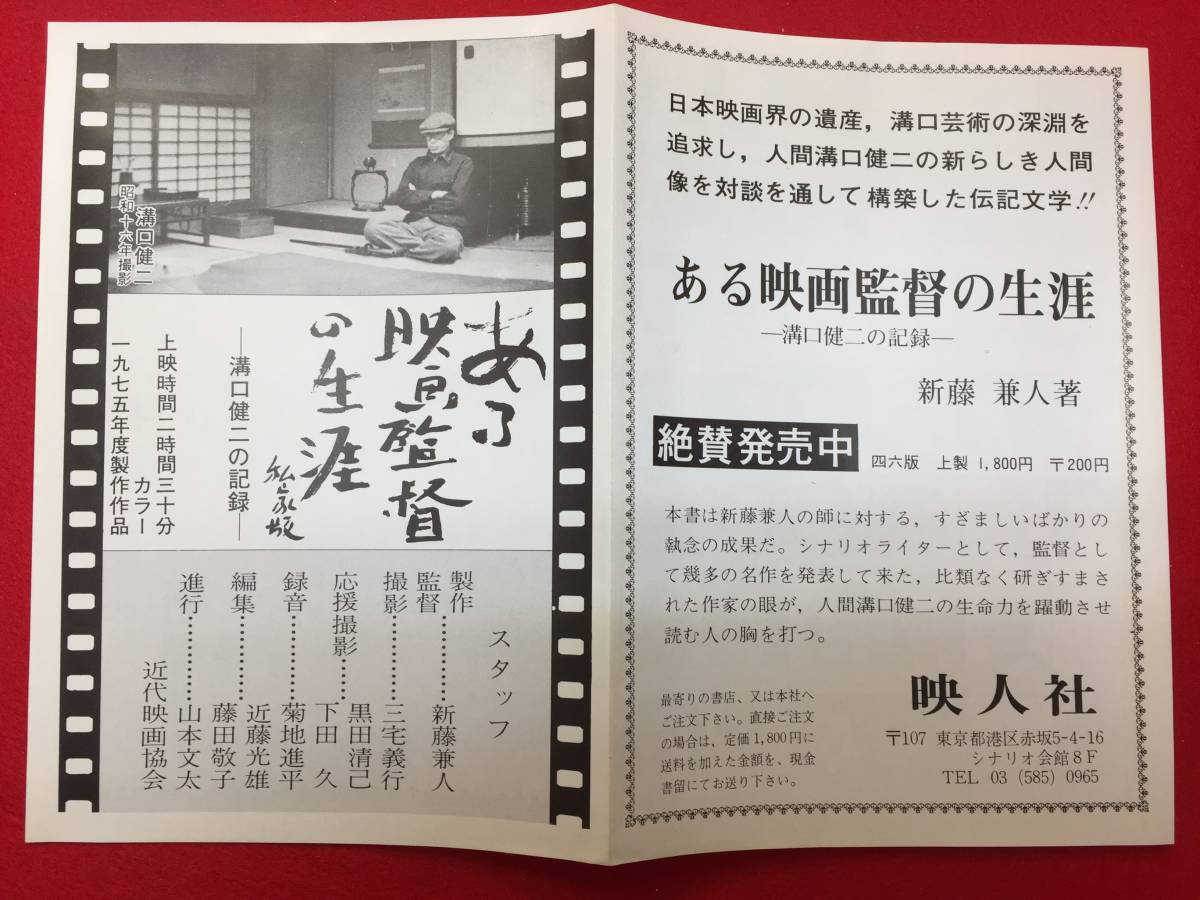 溝口健二
昭和十六年撮影
ある
映画監督
の生涯
私家版
―溝口健二の記録―
上映時間二時間三十分
カラー
一九七五年度製作作品
スタッフ
製作
監督………新藤兼人
撮影………三宅義行
黒田清己
応援撮影……下田 久
録音………菊地進平
近藤光雄
編集………藤田敬子
進行………山本文太
近代映画協会
日本映画界の遺産，溝口芸術の深淵を
追求し，人間溝口健二の新らしき人間
像を対談を通して構築した伝記文学!!
ある映画監督の生涯
―溝口健二の記録―
新藤 兼人著
絶賛発売中
四六版 上製 1,800円 〒200円
本書は新藤兼人の師に対する，すざましいばかりの
執念の成果だ。シナリオライターとして，監督とし
て幾多の名作を発表して来た，比類なく研ぎすまさ
れた作家の眼が，人間溝口健二の生命力を躍動させ
読む人の胸を打つ。
最寄りの書店、又は本社へ
ご注文下さい。直接ご注文
の場合は，定価1,800円に
送料を加えた金額を、現金
書留にてお送り下さい。
映人社
〒107 東京都港区赤坂5-4-16
シナリオ会館8F
TEL 03 (585) 0965